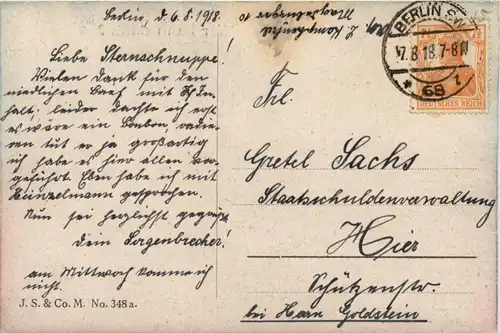 Berlin, d. 6.8.1918.
Liebe Sternschnuppe!
Vielen Dank für den
niedlichen Brief mit
halt, leider dachte ich erst
es wäre ein Bonbon, radie-
ren tut er ja großartig
ich habe es hier allen vor-
geführt. Eben habe ich mit
Heinzelmann gesprochen.
Nun sei herzlichst gegrüßt
dem Sorgenbrecher!
am Mittwoch komme ich
nicht.
J. S. & Co. M. No. 348a.
Magdeburger 10
BERLIN SW
7.8.18.7-8N
* 68 *
DEUTSCHES REICH
Frl.
Gretel Sachs
Staatsschuldenverwaltung
Hier
Schützenstr.
bei Herrn Goldstein